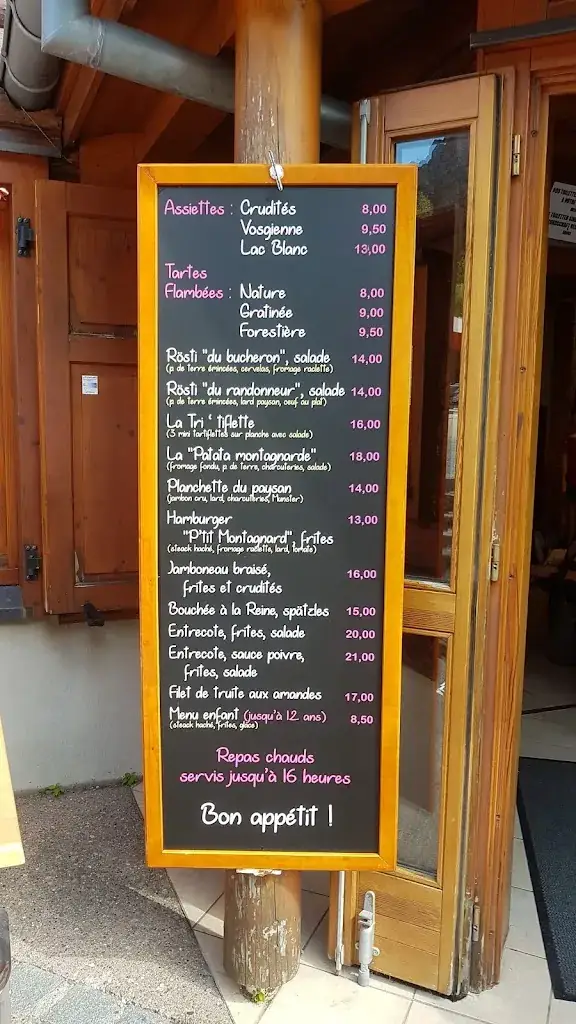 Assiettes : Crudités 8,00
Vosgienne 9,50
Lac Blanc 13,00
Tartes
Flambées : Nature 8,00
Gratinée 9,00
Forestière 9,50
Rösti "du bucheron", salade 14,00
(p. de terre émincées, cervelas, fromage raclette)
Rösti "du randonneur", salade 14,00
(p. de terre émincées, lard paysan, oeuf au plat)
La Tri ' tiflette 16,00
(3 mini tartiflettes sur planche avec salade)
La "Patata montagnarde" 18,00
(fromage fondu, p. de terre, charcuteries, salade)
Planchette du paysan 14,00
(jambon cru, lard, charcuteries, Munster)
Hamburger 13,00
"P'tit Montagnard", frites
(steack haché, fromage raclette, lard, tomate)
Jamboneau braisé, 16,00
frites et crudités
Bouchée à la Reine, spätzles 15,00
Entrecote, frites, salade 20,00
Entrecote, sauce poivre, 21,00
frites, salade
Filet de truite aux amandes 17,00
Menu enfant (jusqu'à 12 ans) 8,50
(steack haché, frites, glace)
Repas chauds
servis jusqu'à 16 heures
Bon appétit !